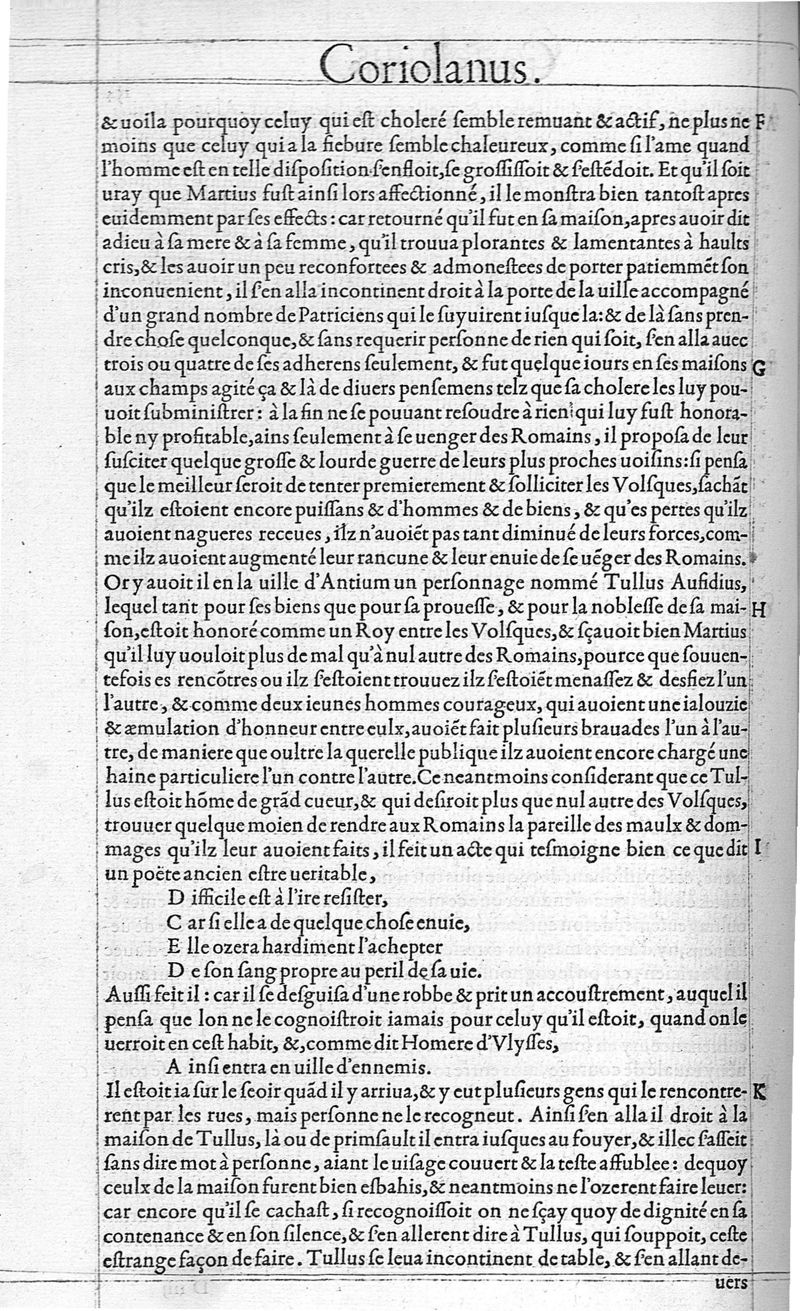 Coriolanus.
& uoila pourquoy celuy qui est choleré semble remuant & actif, ne plus ne F
moins que celuy qui a la fiebure semble chaleureux, comme si l'ame quand
l'homme est en telle disposition s'enfloit, se grossissoit & s'estēdoit. Et qu'il soit
uray que Martius fust ainsi lors affectionné, il le monstra bien tantost apres
euidemment par ses effects: car retourné qu'il fut en sa maison, apres auoir dit
adieu à sa mere & à sa femme, qu'il trouua plorantes & lamentantes à haults
cris, & les auoir un peu reconfortees & admonestees de porter patiemmēt son
inconuenient, il s'en alla incontinent droit à la porte de la uille accompagné
d'un grand nombre de Patriciens qui le suyuirent iusque la: & de là sans pren-
dre chose quelconque, & sans requerir personne de rien qui soit, s'en alla auec
trois ou quatre de ses adherens seulement, & fut quelque iours en ses maisons G
aux champs agité ça & là de diuers pensemens telz que sa cholere les luy pou-
uoit subministrer: à la fin ne se pouuant resoudre à rien qui luy fust honora-
ble ny profitable, ains seulement à se uenger des Romains, il proposa de leur
susciter quelque grosse & lourde guerre de leurs plus proches uoisins: si pensa
que le meilleur seroit de tenter premierement & solliciter les Volsques, sachāt
qu'ilz estoient encore puissans & d'hommes & de biens, & qu'es pertes qu'ilz
auoient nagueres receues, ilz n'auoiēt pas tant diminué de leurs forces, com-
me ilz auoient augmenté leur rancune & leur enuie de se uēger des Romains.
Or y auoit il en la uille d'Antium un personnage nommé Tullus Aufidius,
lequel tant pour ses biens que pour sa prouesse, & pour la noblesse de sa mai- H
son, estoit honoré comme un Roy entre les Volsques, & sçauoit bien Martius
qu'il luy uouloit plus de mal qu'à nul autre des Romains, pource que souuen-
tefois es rencōtres ou ilz s'estoient trouuez ilz s'estoiēt menassez & desfiez l'un
l'autre, & comme deux ieunes hommes courageux, qui auoient une ialouzie
& æmulation d'honneur entre eulx, auoiēt fait plusieurs brauades l'un à l'au-
tre, de maniere que oultre la querelle publique ilz auoient encore chargé une
haine particuliere l'un contre l'autre. Ce neantmoins considerant que ce Tul-
lus estoit hōme de grād cueur, & qui desiroit plus que nul autre des Volsques,
trouuer quelque moien de rendre aux Romains la pareille des maulx & dom-
mages qu'ilz leur auoient faits, il feit un acte qui tesmoigne bien ce que dit I
un poëte ancien estre ueritable,
D ifficile est à l'ire resister,
C ar si elle a de quelque chose enuie,
E lle ozera hardiment l'achepter
D e son sang propre au peril de sa uie.
Aussi feit il: car il se desguisa d'une robbe & prit un accoustrement, auquel il
pensa que lon ne le cognoistroit iamais pour celuy qu'il estoit, quand on le
uerroit en cest habit, &, comme dit Homere d'Vlysses,
A insi entra en uille d'ennemis.
Il estoit ia sur le seoir quād il y arriua, & y eut plusieurs gens qui le rencontre- K
rent par les rues, mais personne ne le recogneut. Ainsi s'en alla il droit à la
maison de Tullus, là ou de primsault il entra iusques au fouyer, & illec s'asseit
sans dire mot à personne, aiant le uisage couuert & la teste affublee: dequoy
ceulx de la maison furent bien esbahis, & neantmoins ne l'ozerent faire leuer:
car encore qu'il se cachast, si recognoissoit on ne sçay quoy de dignité en sa
contenance & en son silence, & s'en allerent dire à Tullus, qui souppoit, ceste
estrange façon de faire. Tullus se leua incontinent de table, & s'en allant de-
uers